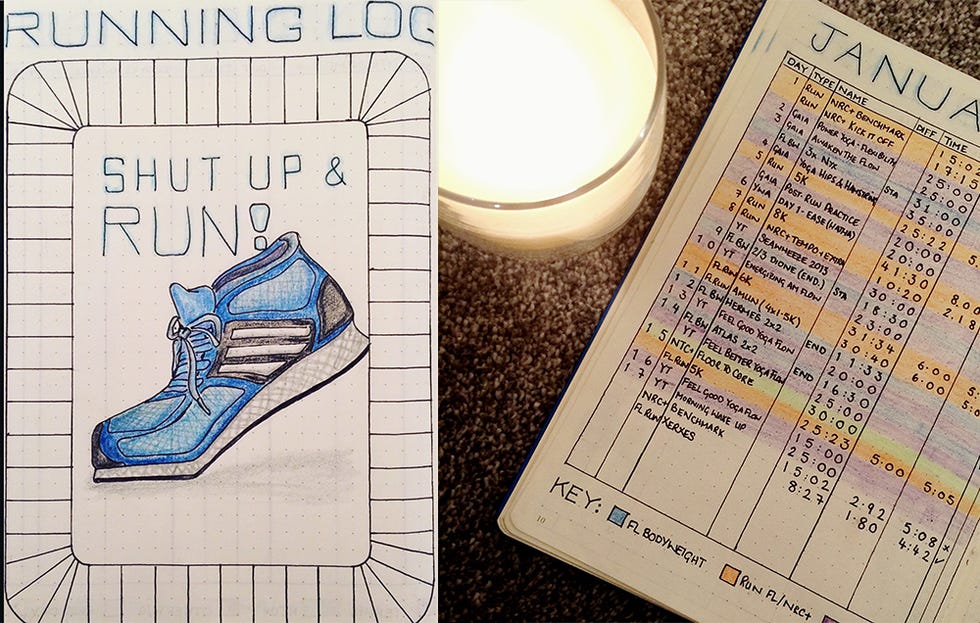 RUNNING LOG
SHUT UP &
RUN!
JANUA
DAY TYPE NAME DIFF TIME
1 RUN NRC+ BENCHMARK
RUN NRC+ KICK IT OFF
2 GAIA POWER YOGA - FLEXIBILITY
3 GAIA AWAKEN THE FLOW
FLBW 3x NYX STA
4 GAIA YOGA HIPS & HAMSTRING
5 RUN 5K
GAIA POST RUN PRACTICE
6 YWA DAY 1 - EASE (HATHA)
7 RUN 8K
8 RUN NRC+ TEMPO + EXTRA
YT SEAWHEEZE 2013
9 FLBW 2/3 DIONE (END.) STA
10 YT ENERGIZING AM FLOW
FLRUN 6K
11 FLRUN AMLIN (4x1.5K)
12 FLBW HERMES 2x2 END
13 YT FEEL GOOD YOGA FLOW
14 FLBW ATLAS 2x2 END
YT FEEL BETTER YOGA FLOW
15 NTC+ FLOOR TO CORE
FLRUN 5K
16 YT FEEL GOOD YOGA FLOW
17 YT MORNING WAKE UP
NRC+ BENCHMARK
FLRUN XERXES
17:15
25:00
31:00
35:00
25:22
20:00
20:00
41:30
10:20
30:00
18:30
23:00
31:34
30:40
19:33 6:00
20:00 6:00
16:30
25:00
30:00
25:23 5:00 5:05
15:00
25:00
15:02 2.92 5:08 x
8:27 1.80 4:42 ✓
KEY: FL BODYWEIGHT RUN FL/NRC+
10